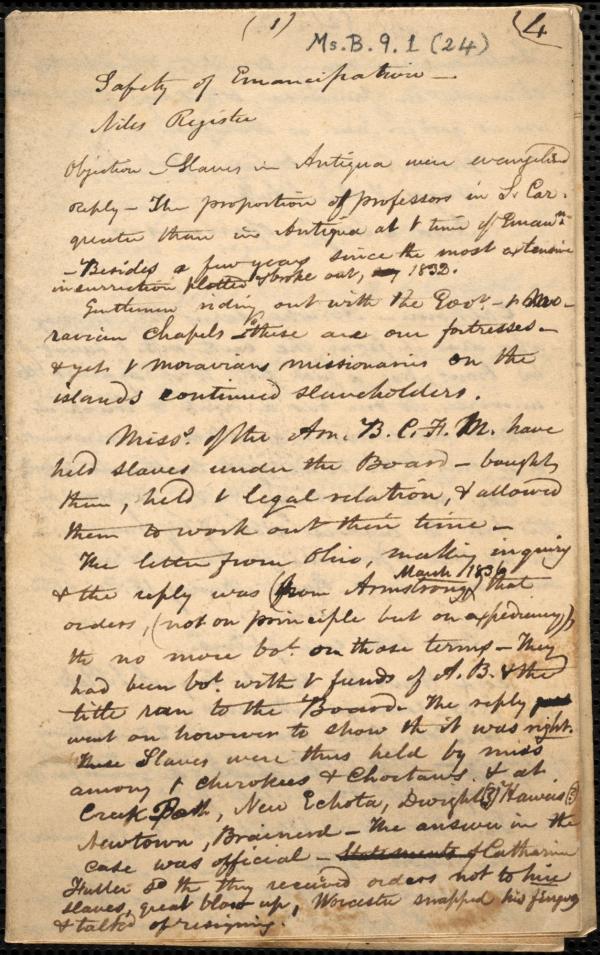 (1)
Ms. B. 9. 1 (24)
4
Safety of Emancipation —
Niles Register
Objection — Slaves in Antigua were evangelised
reply — The proportion of professors in S. Car.
greater than in Antigua at t time of Eman.n
— Besides a few years since the most extensive
insurrection plotted & broke out, 1832.
Gentlemen riding out with the Govr. — t Mo-
ravian Chapels — "these are our fortresses —
& yet t moravians missionaries on the
islands continued slaveholders.
Misss. of the Am. B. C. F. M. have
held slaves under the Board — bought
them, held t legal relation, & allowed
them to work out their time —
The letter from Ohio, making inquiry
& the reply was (from Armstrong March 1836) that
orders, (not on principle but on expediency),
tb no more bot. on those terms — They
had been bot. with t funds of A. B. & the
title ran to the Board. The reply
went on however to show th it was right.
These Slaves were thus held by miss
among t Cherokees & Choctaws. & at
Creek Path, New Echota, Dwight (3) Haweis (3)
Newtown, Brainerd — The answer in the
case was official — Statements of Catharine
Fuller sd th they received orders not to hire
slaves, great blow up, Worcester snapped his fingers
& talkd of resigning.